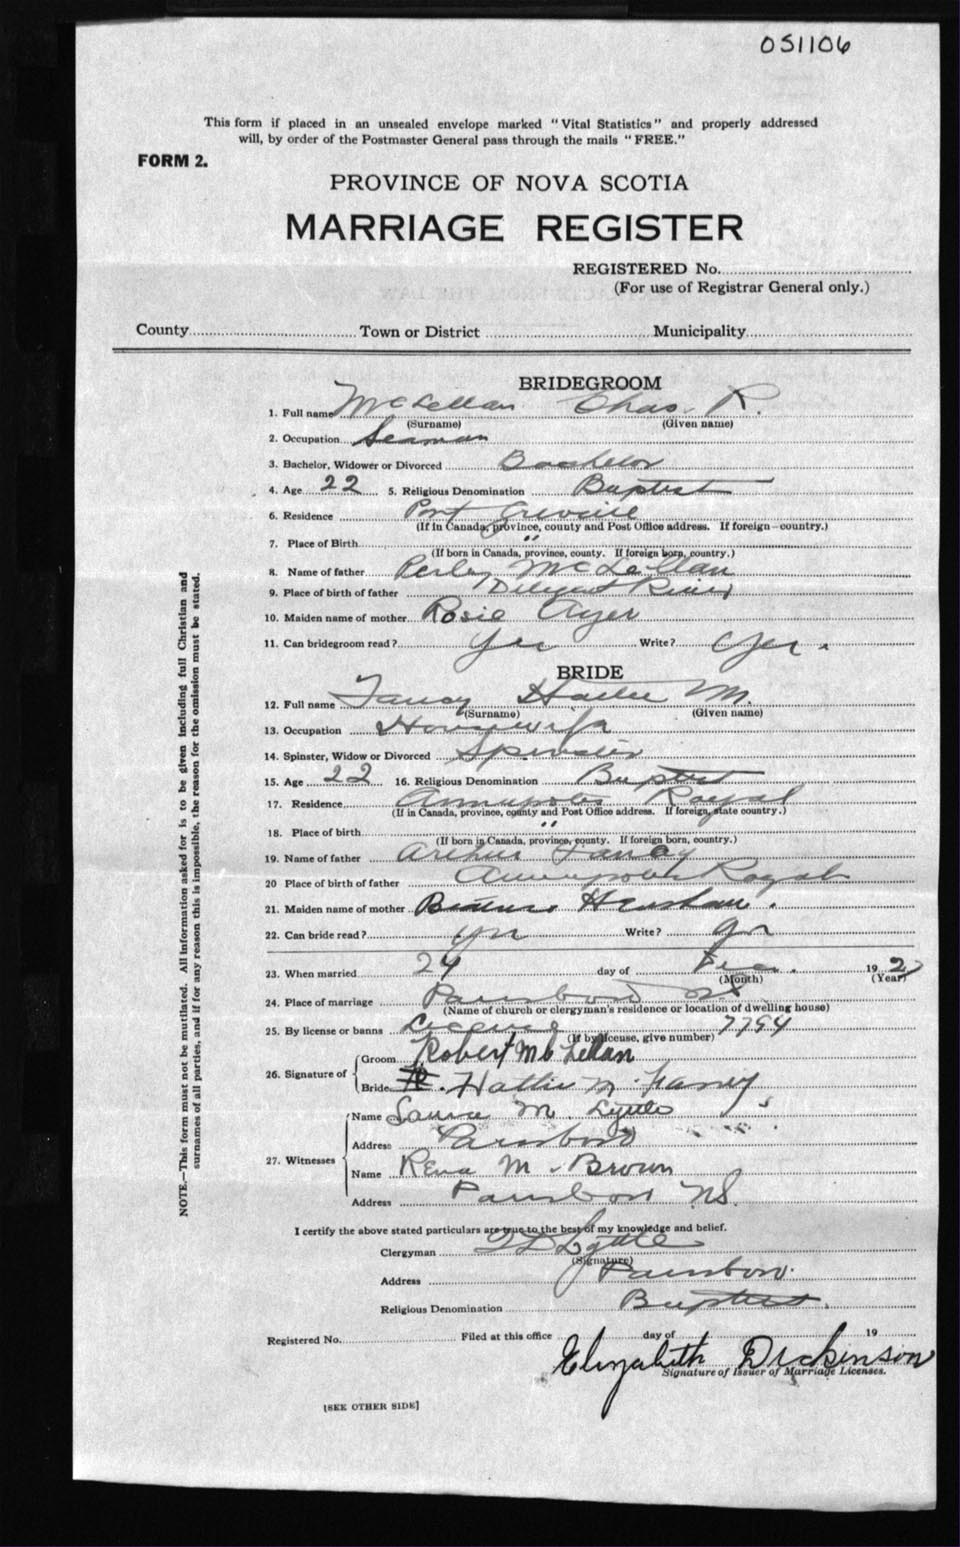 051106
This form if placed in an unsealed envelope marked "Vital Statistics" and properly addressed
will, by order of the Postmaster General pass through the mails "FREE."
FORM 2.
PROVINCE OF NOVA SCOTIA
MARRIAGE REGISTER
REGISTERED No.
(For use of Registrar General only.)
County Town or District Municipality
BRIDEGROOM
1. Full name McLellan Chas. R.
(Surname) (Given name)
2. Occupation Seaman
3. Bachelor, Widower or Divorced Bachelor
4. Age 22 5. Religious Denomination Baptist
6. Residence Port Greville
(If in Canada, province, county and Post Office address. If foreign—country.)
7. Place of Birth "
(If born in Canada, province, county. If foreign born, country.)
8. Name of father Perley McLellan
9. Place of birth of father Diligent River
10. Maiden name of mother Rosie Ayer
11. Can bridegroom read? Yes Write? Yes.
BRIDE
12. Full name Fancy Hattie M.
(Surname) (Given name)
13. Occupation Housewife
14. Spinster, Widow or Divorced Spinster
15. Age 22 16. Religious Denomination Baptist
17. Residence Annapolis Royal
(If in Canada, province, county and Post Office address. If foreign, state country.)
18. Place of birth "
(If born in Canada, province, county. If foreign born, country.)
19. Name of father Arthur Fancy
20 Place of birth of father Annapolis Royal
21. Maiden name of mother Henshaw.
22. Can bride read? Yes Write? Yes
23. When married 24 day of 192
(Month) (Year)
24. Place of marriage Parrsboro NS
(Name of church or clergyman's residence or location of dwelling house)
25. By license or banns License 7794
(If by license, give number)
26. Signature of Groom Robert McLellan
Bride Hattie M. Fancy
27. Witnesses Name Laura M. Lyttle
Address Parrsboro
Name Rena M. Brown
Address Parrsboro NS.
I certify the above stated particulars are true to the best of my knowledge and belief.
Clergyman Lyttle
(Signature)
Address Parrsboro.
Religious Denomination Baptist.
Registered No. Filed at this office day of 19
Elizabeth Dickinson
Signature of Issuer of Marriage Licenses.
[SEE OTHER SIDE]
NOTE.—This form must not be mutilated. All information asked for is to be given including full Christian and
surnames of all parties, and if for any reason this is impossible, the reason for the omission must be stated.